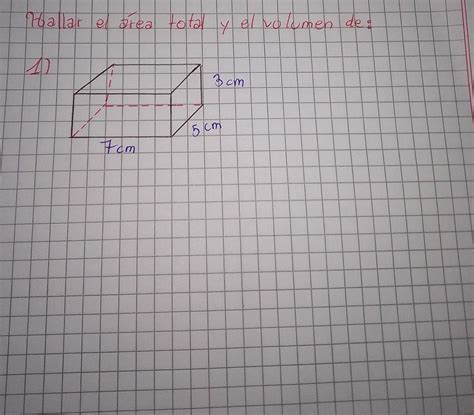 Hallar el área total y el volumen de:
1)
3 cm
5 cm
7 cm